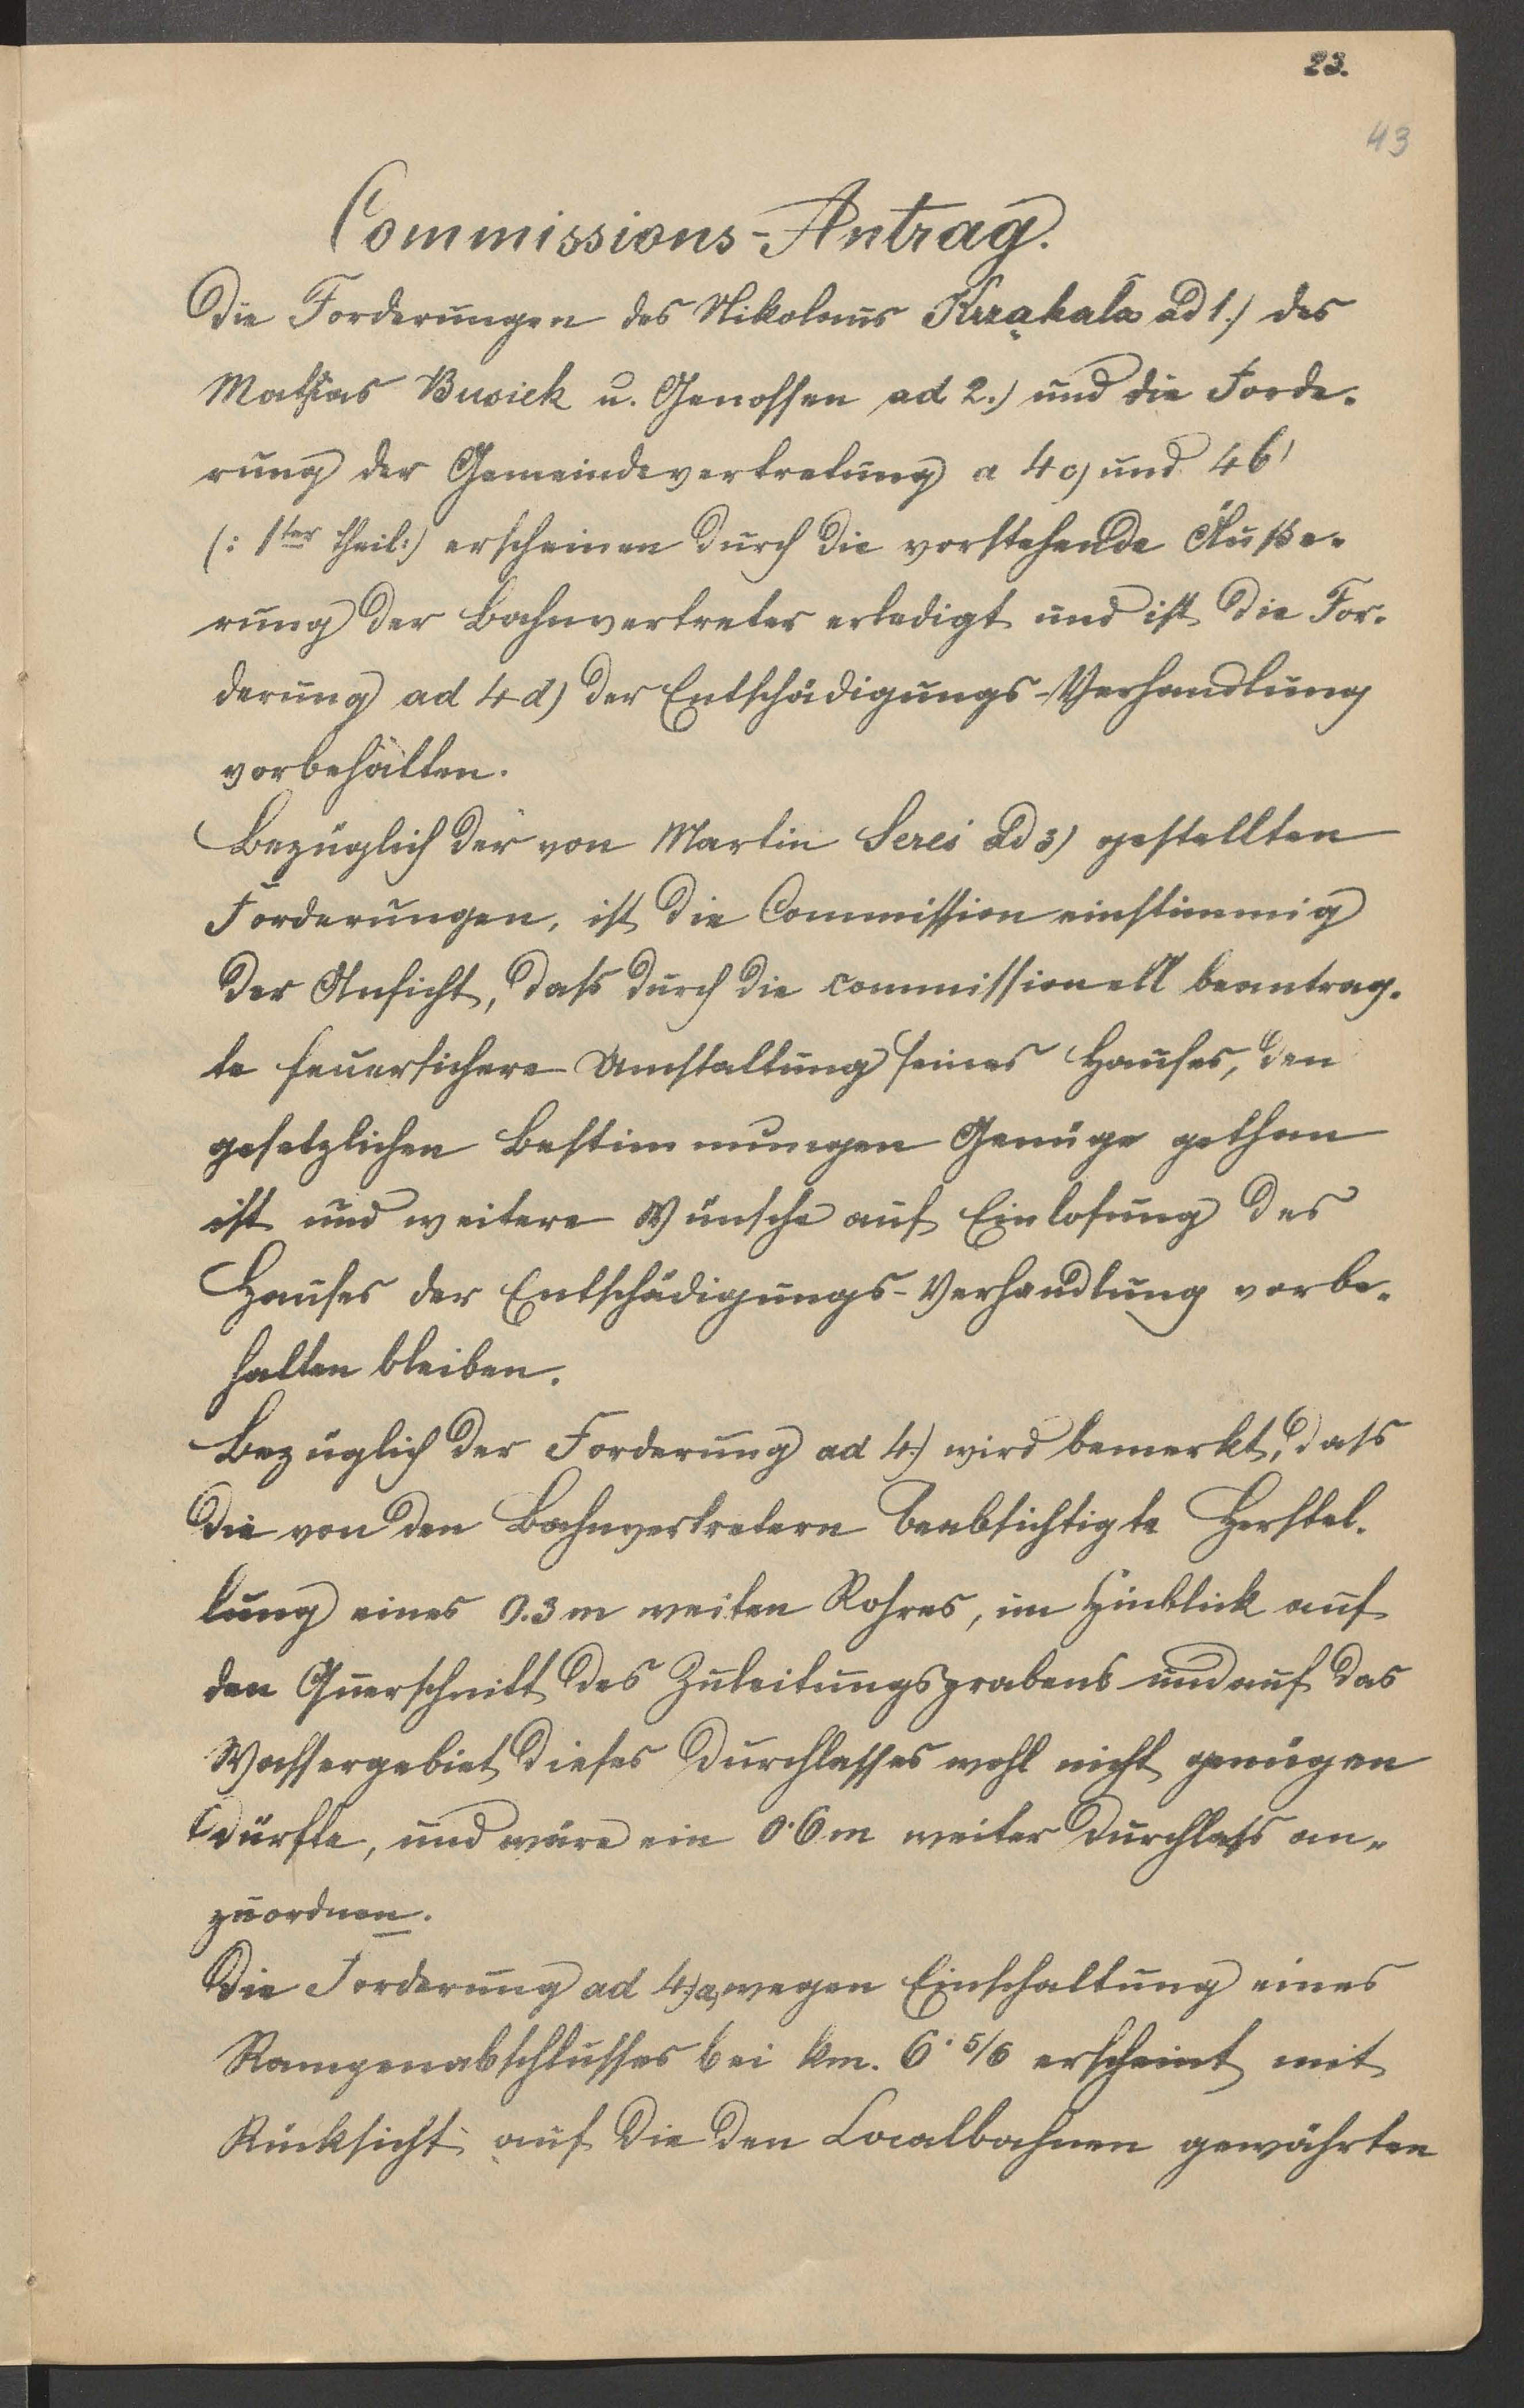 23.
43
Commissions-Antrag.
Die Forderungen des Nikolaus Krząkala ad 1.) des
Mathias Busiek u. Genossen ad 2.) und die Forde-
rung der Gemeindevertretung a 4c) und 4b)
(: 1ter Theil:) erscheinen durch die vorstehende Äuße-
rung der Bahnvertreter erledigt und ist die For-
derung ad 4d) der Entschädigungs-Verhandlung
vorbehalten.
Bezüglich der von Martin Seres ad 3) gestellten
Forderungen, ist die Commission einstimmig
der Ansicht, dass durch die commissionell beantrag-
te feuersichere Umstaltung seines Hauses, den
gesetzlichen Bestimmungen Genüge gethan
ist und weitere Wünsche auf Einlösung des
Hauses der Entschädigungs-Verhandlung vorbe-
halten bleiben.
Bezüglich der Forderung ad 4.) wird bemerkt, dass
die von den Bahnvertretern beabsichtigte Herstel-
lung eines 0.3 m weiten Rohres, im Hinblick auf
den Querschnitt des Zuleitungsgrabens und auf das
Wassergebiet dieses Durchlasses wohl nicht genügen
dürfte, und wäre ein 0·6 m weiter Durchlass an-
zuordnen.
Die Forderung ad 4.)a, wegen Einschaltung eines
Rampenabschlusses bei km. 6·5/6 erscheint mit
Rücksicht auf die den Localbahnen gewährten